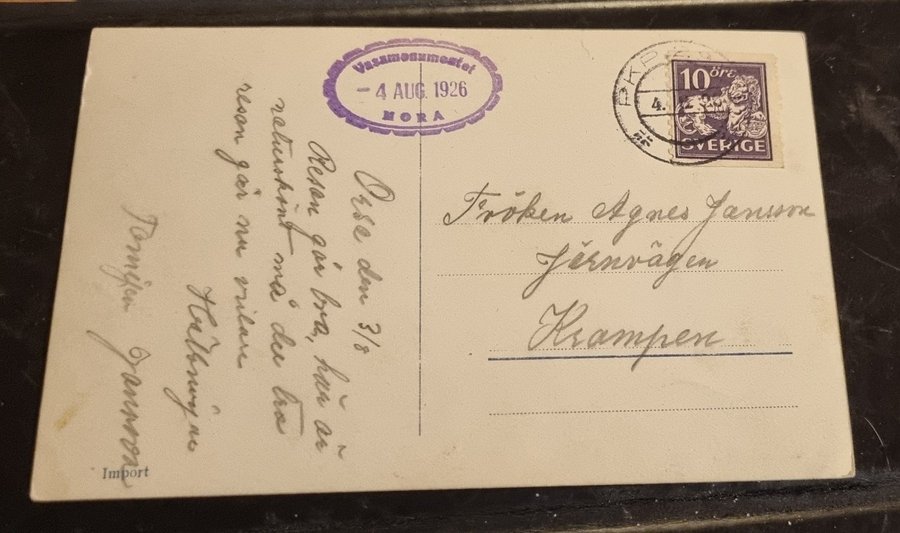 Vasamonumentet
- 4 AUG. 1926
MORA
10 öre
SVERIGE
PKP
4.
Orsa den 3/8
Resan går bra, här är
naturskönt må du tro
resan går nu vidare
Hälsningar
Familjen Jansson
Fröken Agnes Jansson
Järnvägen
Krampen
Import